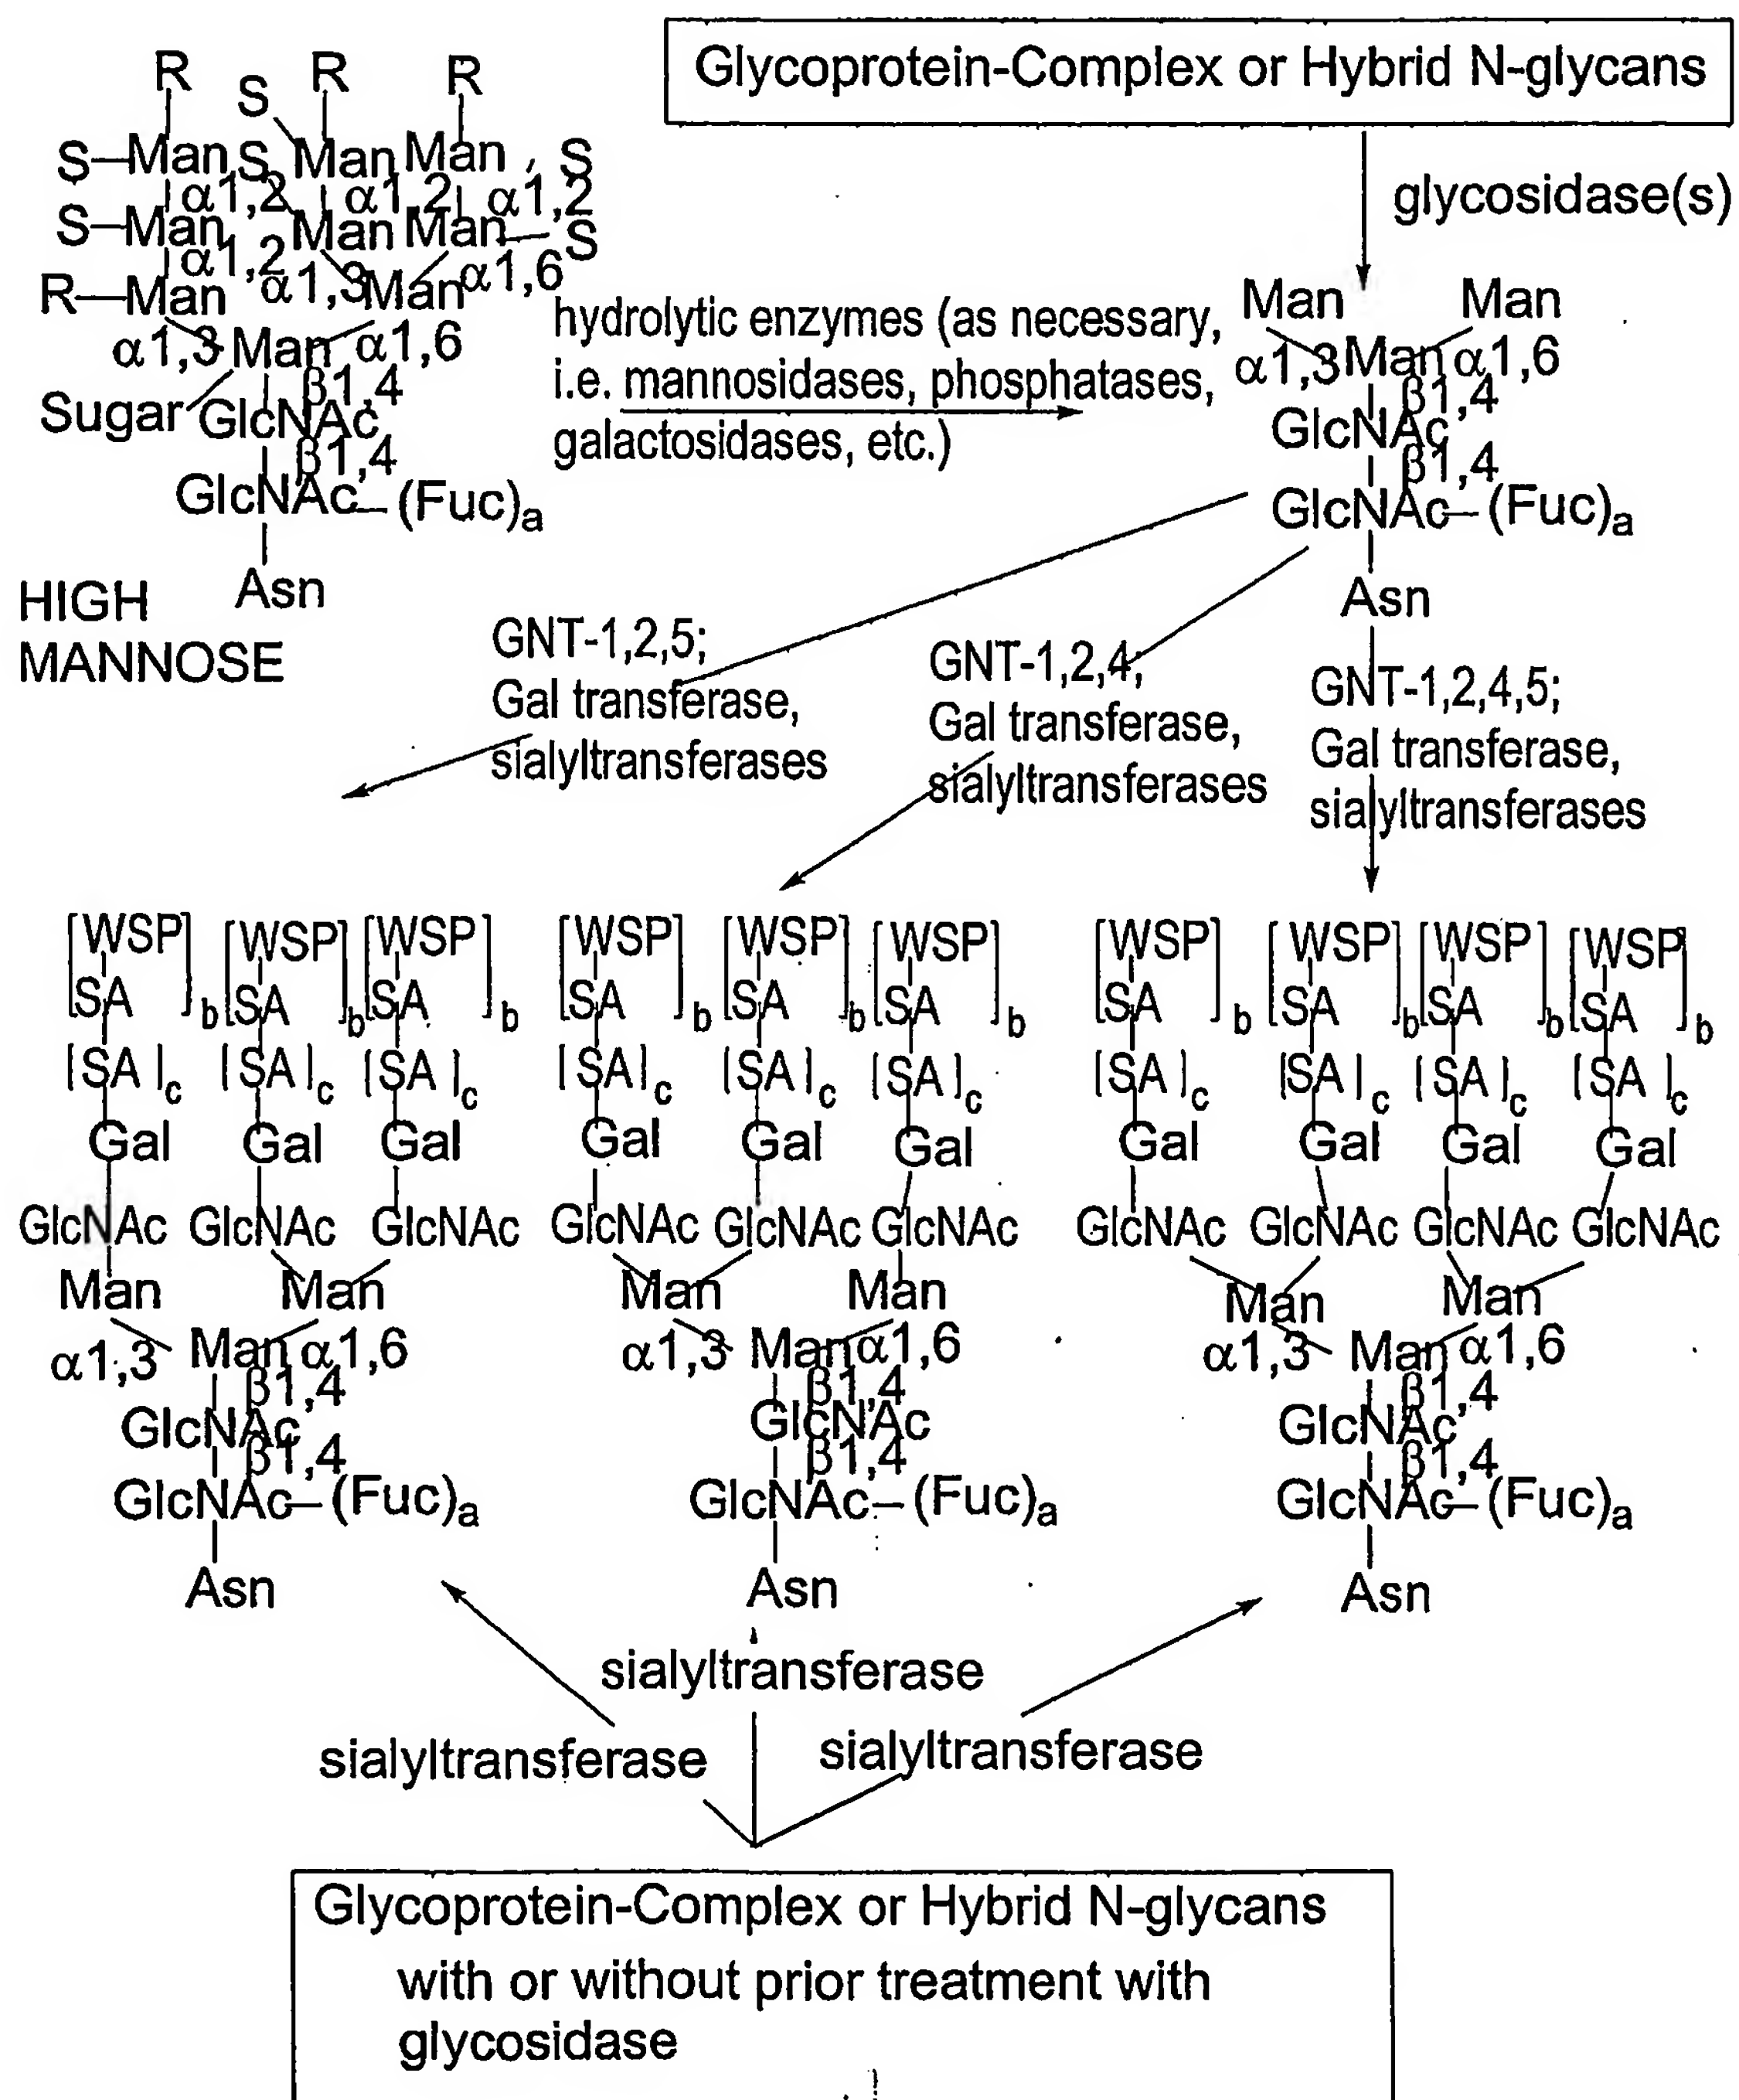 Glycoprotein-Complex or Hybrid N-glycans
glycosidase(s)
R S R R
S–Man S Man Man S
α1,2 α1,2 α1,2
S–Man Man Man – S
α1,2 α1,3 Man α1,6
R—Man
α1,3 Man α1,6
β1,4
Sugar GlcNAc
β1,4
GlcNAc – (Fuc)a
Asn
HIGH
MANNOSE
hydrolytic enzymes (as necessary,
i.e. mannosidases, phosphatases,
galactosidases, etc.)
Man Man
α1,3 Man α1,6
β1,4
GlcNAc
β1,4
GlcNAc – (Fuc)a
Asn
GNT-1,2,5;
Gal transferase,
sialyltransferases
GNT-1,2,4;
Gal transferase,
sialyltransferases
GNT-1,2,4,5;
Gal transferase,
sialyltransferases
[WSP [WSP [WSP
SA]b SA]b SA]b
[SA]c [SA]c [SA]c
Gal Gal Gal
GlcNAc GlcNAc GlcNAc
Man Man
α1,3 Man α1,6
β1,4
GlcNAc
β1,4
GlcNAc – (Fuc)a
Asn
[WSP [WSP [WSP
SA]b SA]b SA]b
[SA]c [SA]c [SA]c
Gal Gal Gal
GlcNAc GlcNAc GlcNAc
Man Man
α1,3 Man α1,6
β1,4
GlcNAc
β1,4
GlcNAc – (Fuc)a
Asn
[WSP [WSP [WSP [WSP
SA]b SA]b SA]b SA]b
[SA]c [SA]c [SA]c [SA]c
Gal Gal Gal Gal
GlcNAc GlcNAc GlcNAc GlcNAc
Man Man
α1,3 Man α1,6
β1,4
GlcNAc
β1,4
GlcNAc – (Fuc)a
Asn
sialyltransferase
sialyltransferase
sialyltransferase
Glycoprotein-Complex or Hybrid N-glycans
with or without prior treatment with
glycosidase